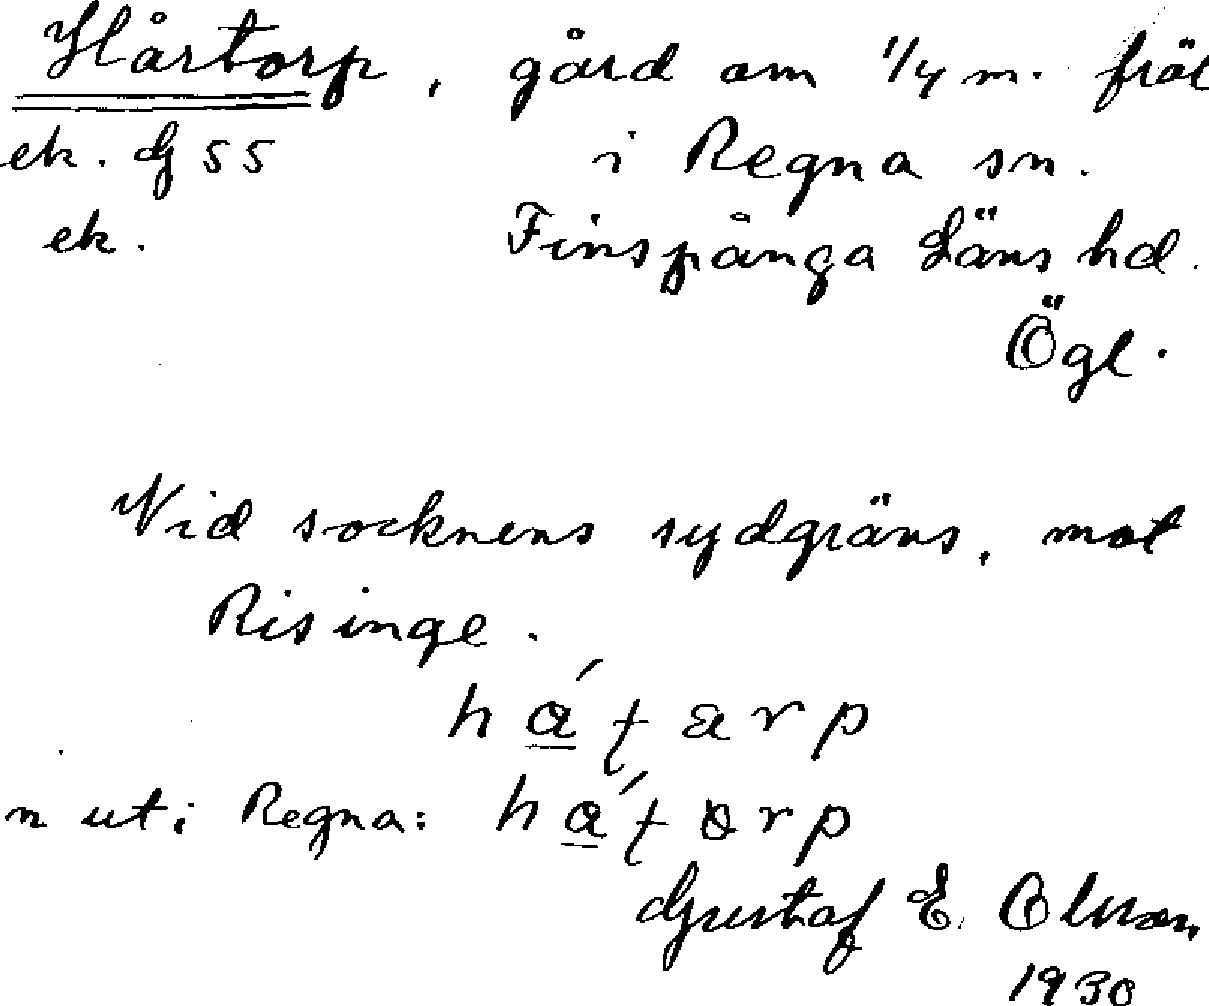 Hårtorp, gård om 1/4 m. frät
ek. dj 55 i Regna sn.
ek. Finspånga Läns hd.
Ögl.
Vid socknens sydgräns, mot
Risinge.
hát arp
n uti Regna: hát orp
Gustaf E. Olsson,
1930